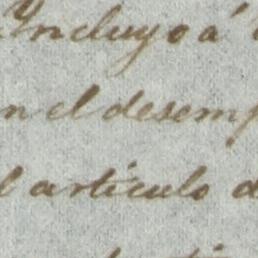 Incluyo á
n el desem
l artículo d